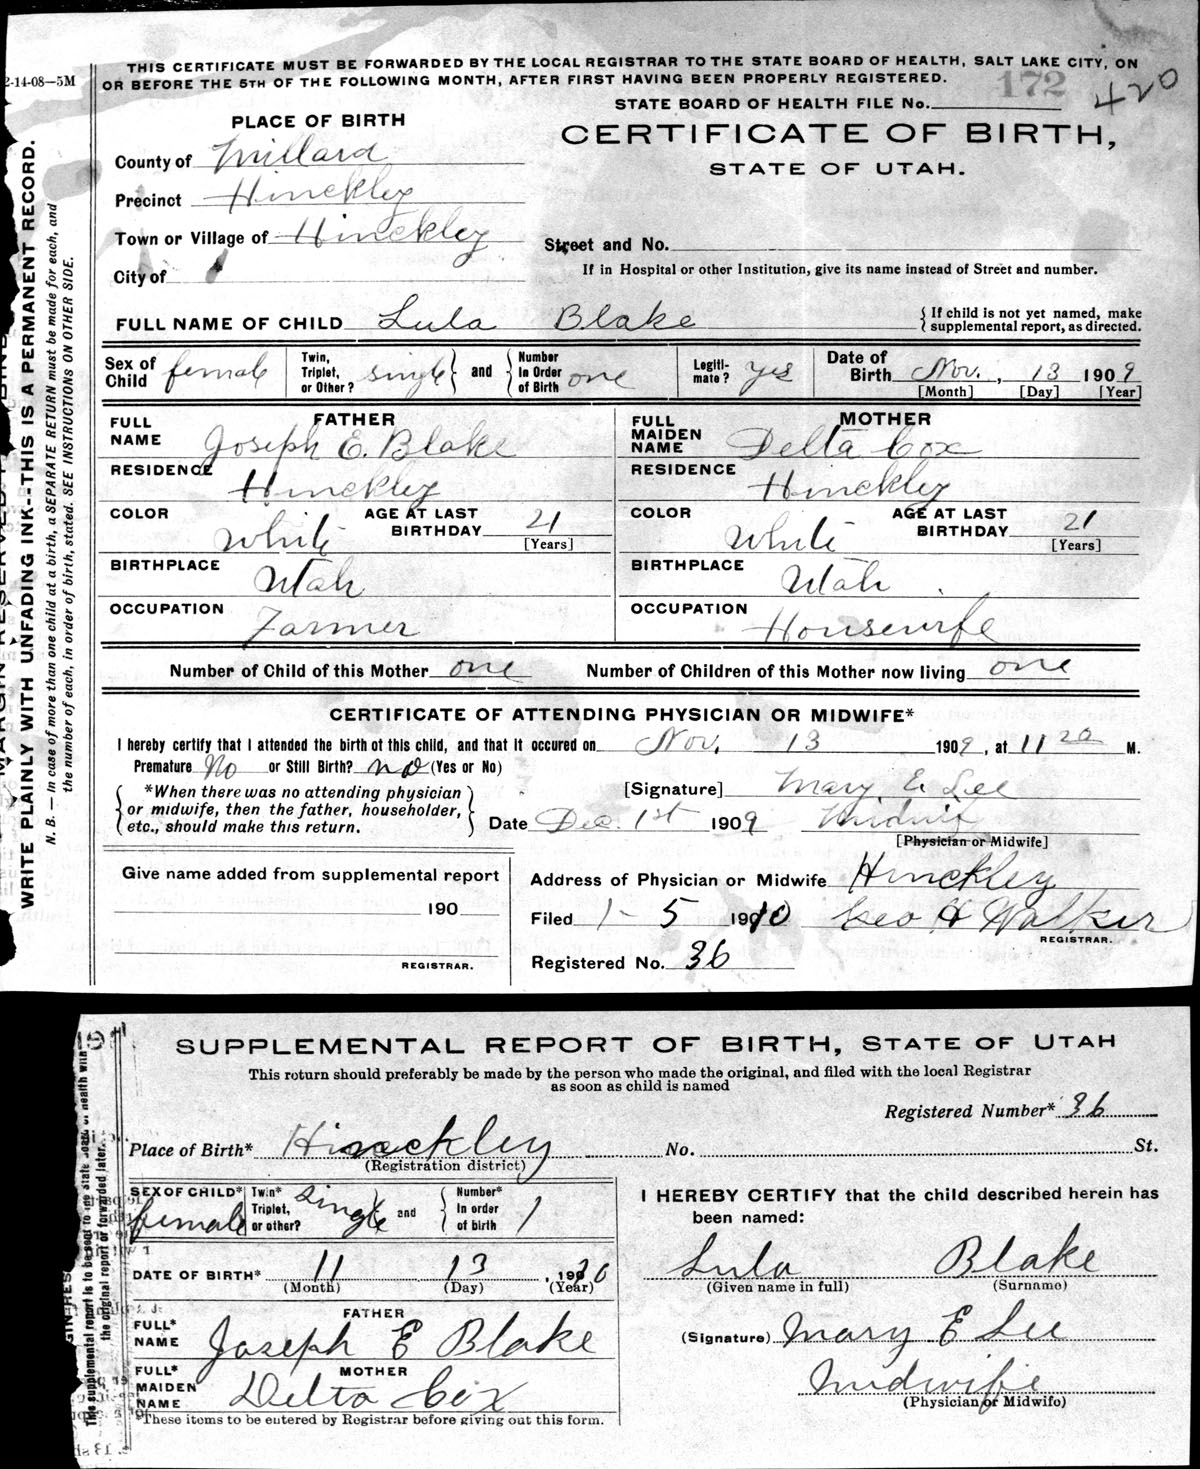 2-14-08—5M
THIS CERTIFICATE MUST BE FORWARDED BY THE LOCAL REGISTRAR TO THE STATE BOARD OF HEALTH, SALT LAKE CITY, ON
OR BEFORE THE 5TH OF THE FOLLOWING MONTH, AFTER FIRST HAVING BEEN PROPERLY REGISTERED.
172
420
STATE BOARD OF HEALTH FILE No.
PLACE OF BIRTH
CERTIFICATE OF BIRTH,
STATE OF UTAH.
County of Millard
Precinct Hinckley
Town or Village of Hinckley
Street and No.
City of
If in Hospital or other Institution, give its name instead of Street and number.
FULL NAME OF CHILD Lula Blake
{ If child is not yet named, make
supplemental report, as directed.
Sex of Child female
Twin, Triplet, or Other? single } and { Number In Order of Birth one
Legiti-mate? yes
Date of Birth Nov., 13 1909
[Month] [Day] [Year]
FATHER
FULL NAME Joseph E. Blake
RESIDENCE Hinckley
COLOR White AGE AT LAST BIRTHDAY 21
[Years]
BIRTHPLACE Utah
OCCUPATION Farmer
MOTHER
FULL MAIDEN NAME Delta Cox
RESIDENCE Hinckley
COLOR White AGE AT LAST BIRTHDAY 21
[Years]
BIRTHPLACE Utah
OCCUPATION Housewife
Number of Child of this Mother one Number of Children of this Mother now living one
CERTIFICATE OF ATTENDING PHYSICIAN OR MIDWIFE*
I hereby certify that I attended the birth of this child, and that it occured on Nov. 13 1909, at 11 20 M.
Premature No or Still Birth? no (Yes or No)
{ *When there was no attending physician
or midwife, then the father, householder,
etc., should make this return. }
[Signature] Mary E. Lee
Date Dec. 1st 1909 Midwife
[Physician or Midwife]
Give name added from supplemental report
190
REGISTRAR.
Address of Physician or Midwife Hinckley
Filed 1-5 1910 Geo H Walker
REGISTRAR.
Registered No. 36
WRITE PLAINLY WITH UNFADING INK--THIS IS A PERMANENT RECORD.
N. B.—In case of more than one child at a birth, a SEPARATE RETURN must be made for each, and
the number of each, in order of birth, stated. SEE INSTRUCTIONS ON OTHER SIDE.
SUPPLEMENTAL REPORT OF BIRTH, STATE OF UTAH
This return should preferably be made by the person who made the original, and filed with the local Registrar
as soon as child is named
Registered Number* 36
Place of Birth* Hinckley No. St.
(Registration district)
SEX OF CHILD* female
Twin* Triplet, or other? single and { Number* In order of birth 1
DATE OF BIRTH* 11 13, 190
(Month) (Day) (Year)
FATHER
FULL* NAME Joseph E Blake
MOTHER
FULL* MAIDEN NAME Delta Cox
*These items to be entered by Registrar before giving out this form.
I HEREBY CERTIFY that the child described herein has
been named:
Lula Blake
(Given name in full) (Surname)
(Signature) Mary E Lee
Midwife
(Physician or Midwife)
the original report or forwarded later.